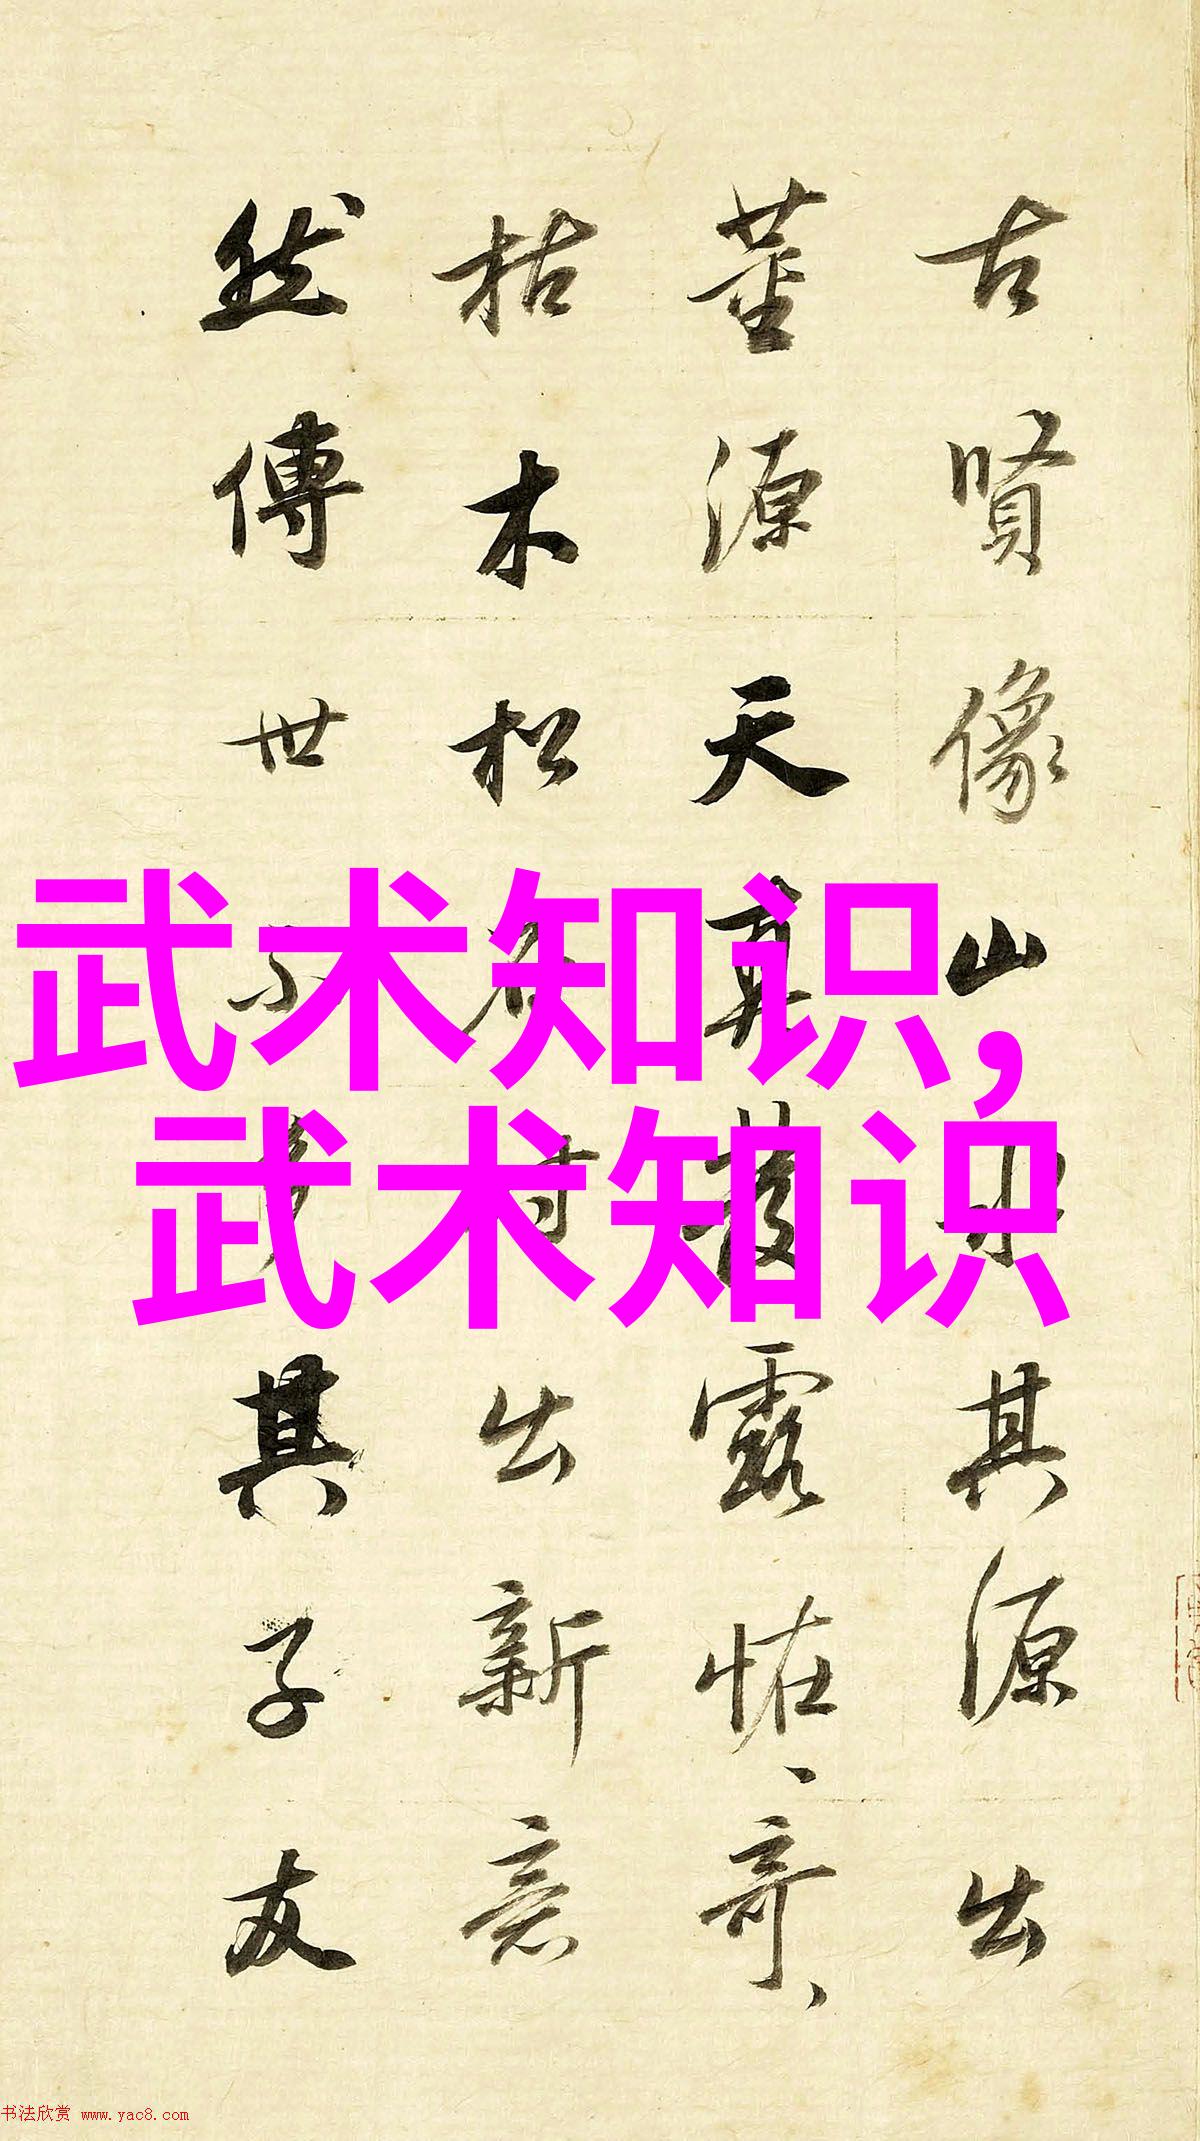 古賢像山水其源出
董源天真發露恠、奇、
枯木松石出新意
然傳世不其子友
武术知识,
武术知识
书法欣赏 www.yac8.com